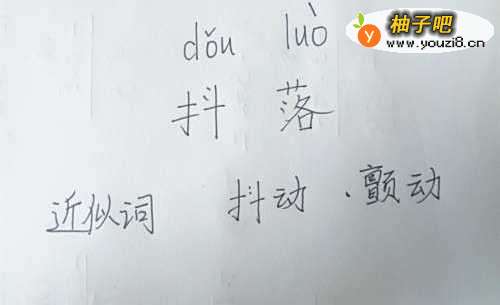 柚子吧
www.youzi8.cn
dǒu luò
抖落
近似词 抖动、颤动